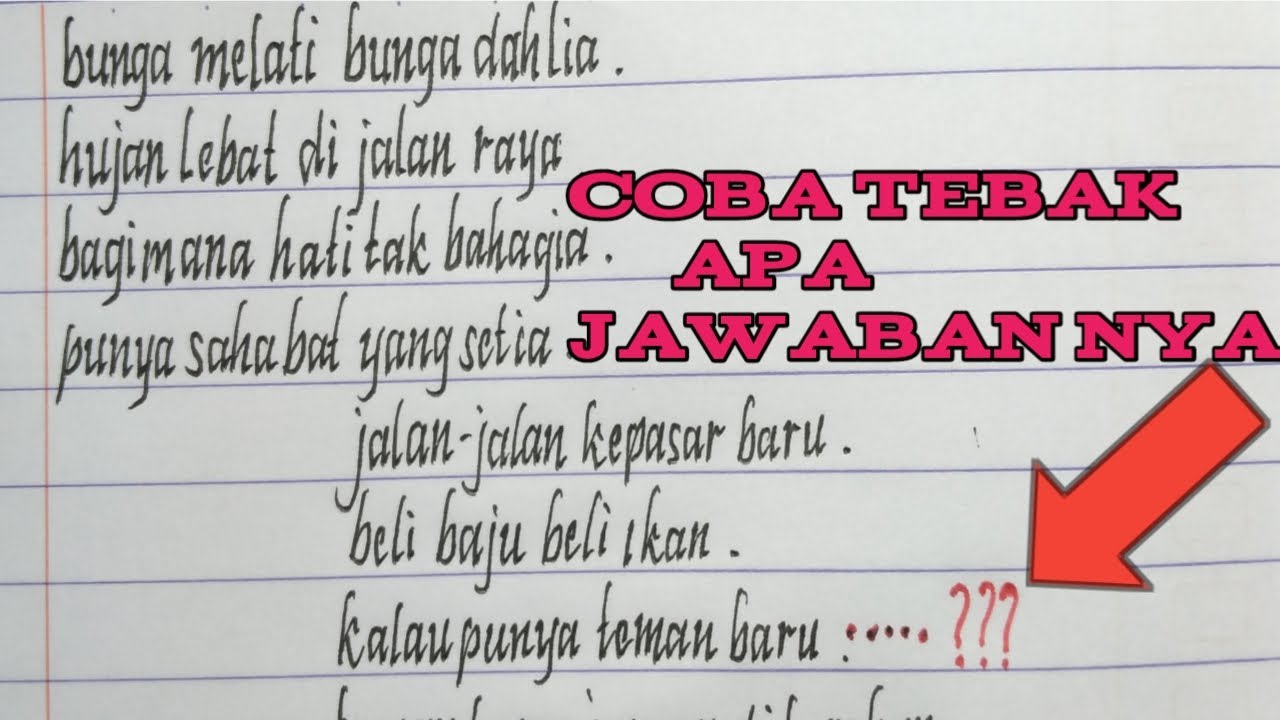 bunga melati bunga dahlia .
hujan lebat di jalan raya
bagimana hati tak bahagia .
punya sahabat yang setia .
COBA TEBAK
APA
JAWABAN NYA
jalan-jalan kepasar baru .
beli baju beli ikan .
kalau punya teman baru : ..... ???